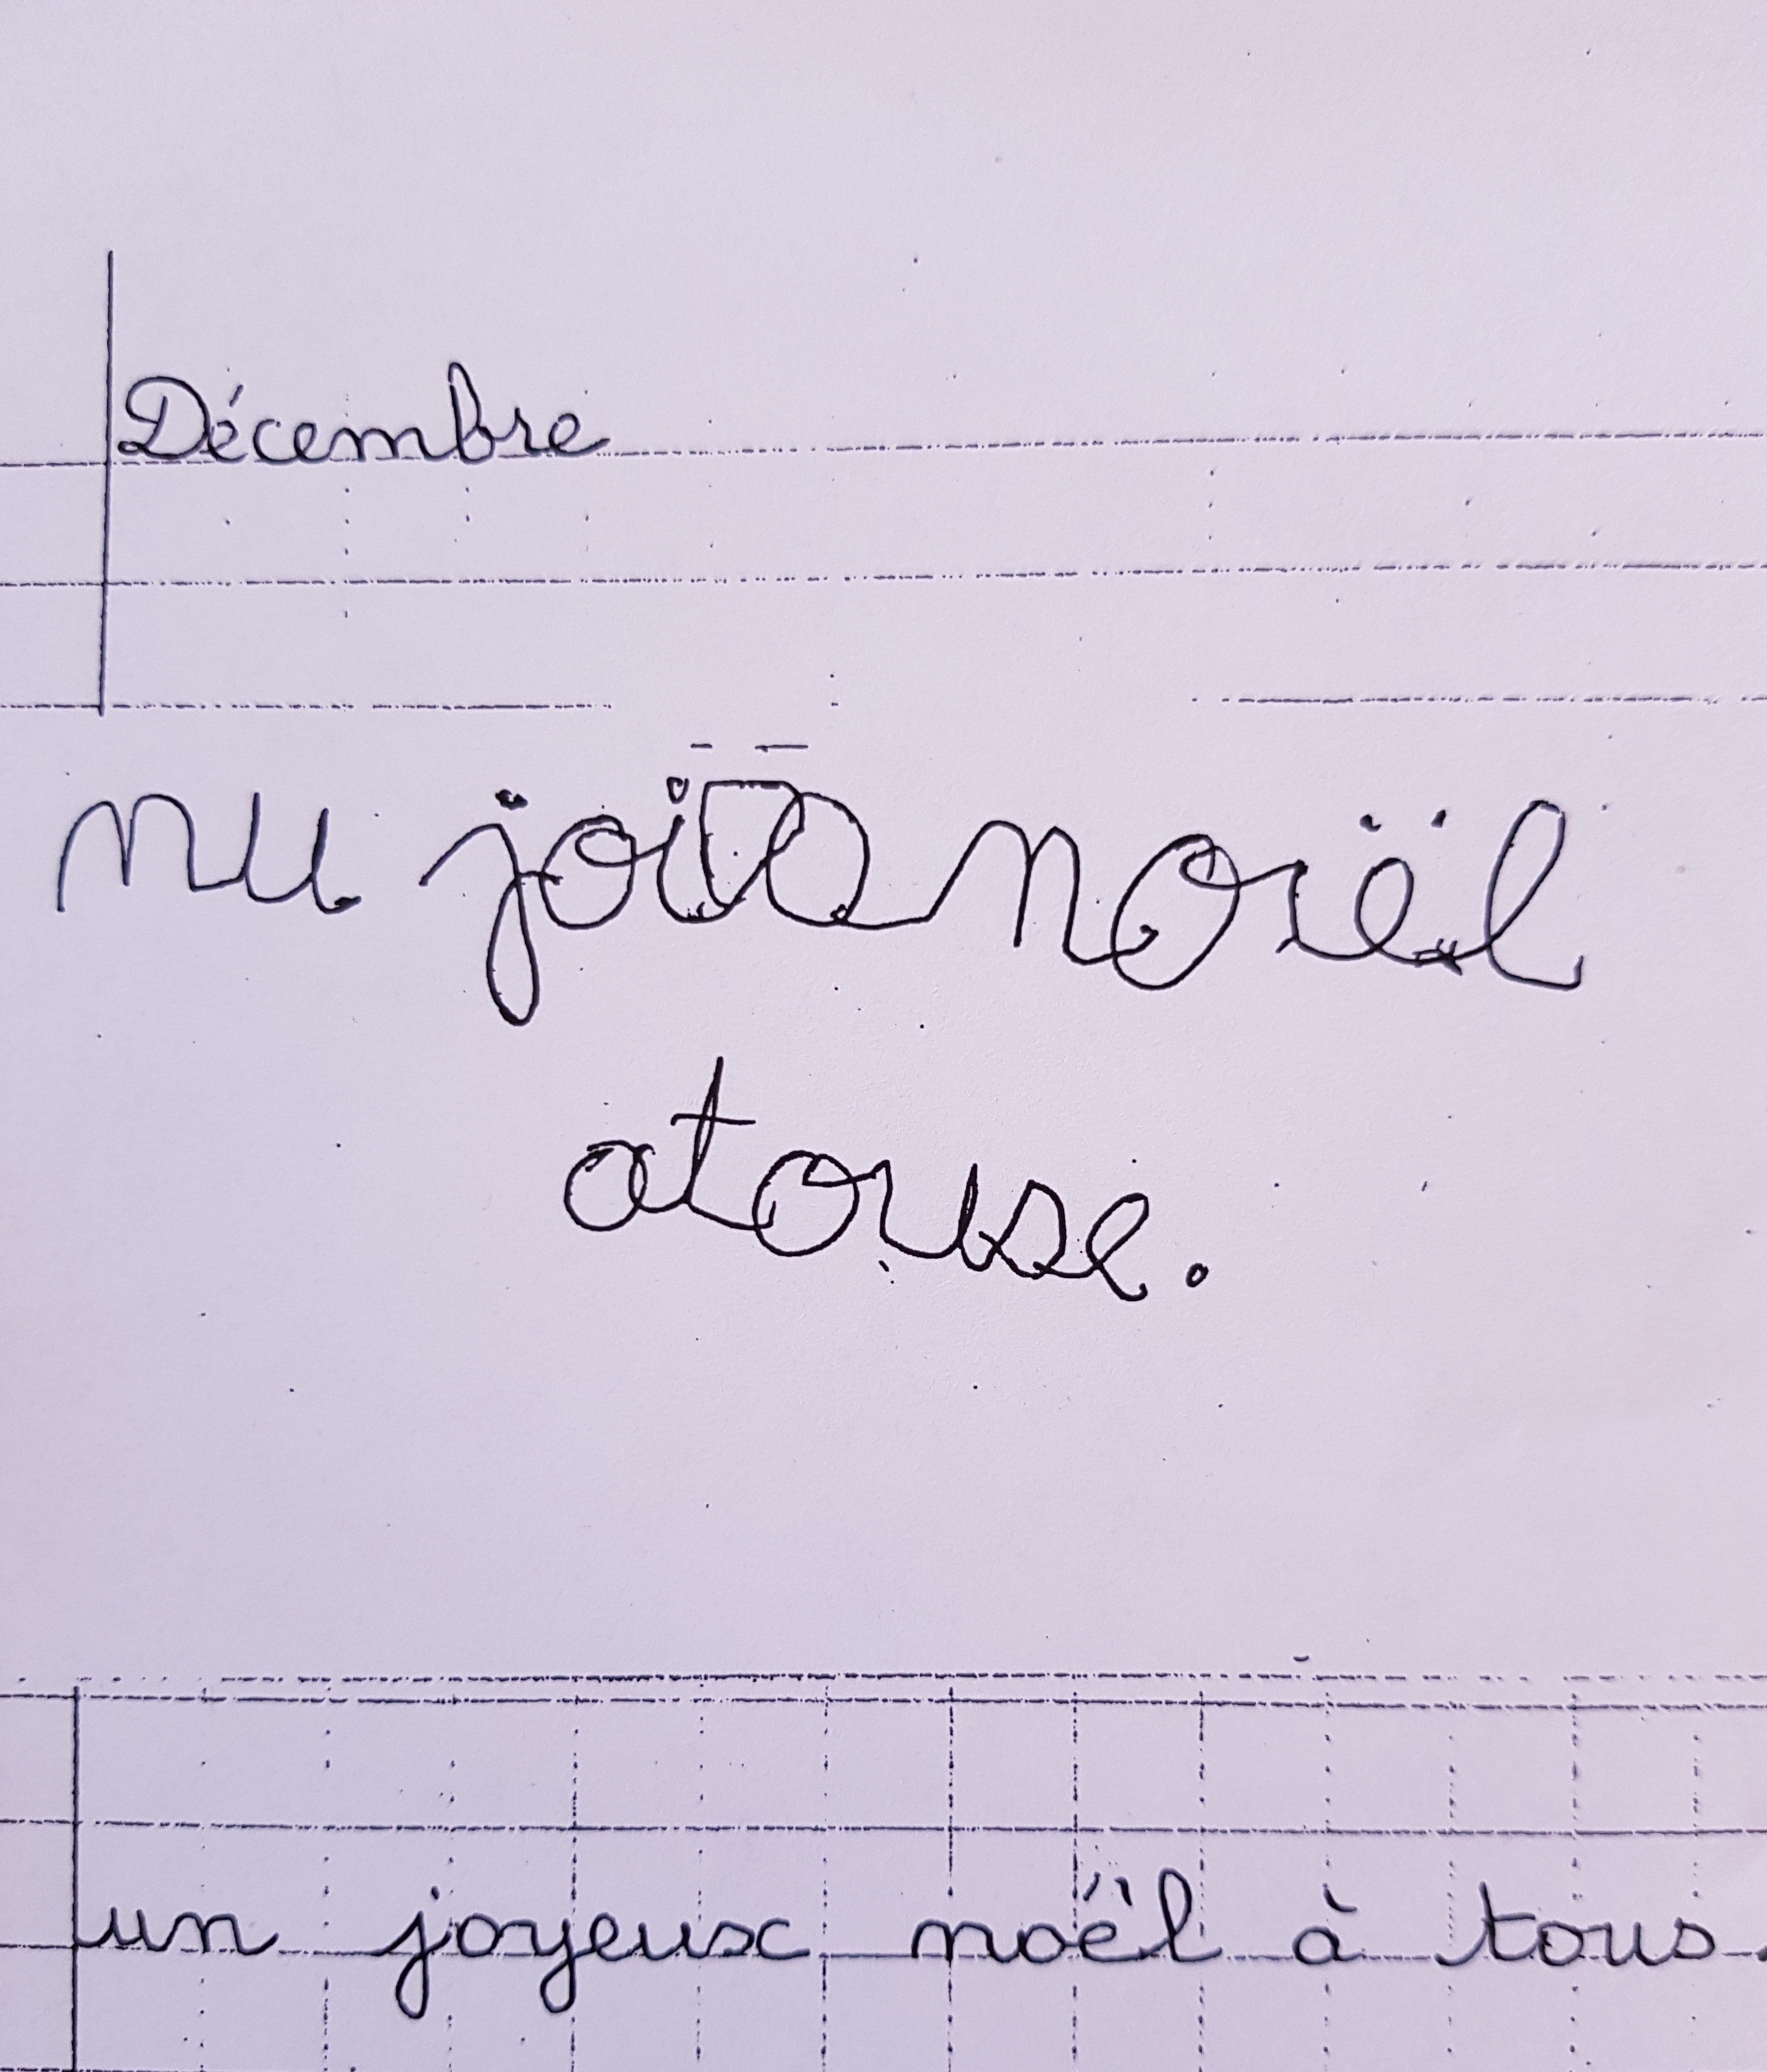 Décembre
nu noël
atouse.
un joyeux noël à tous.